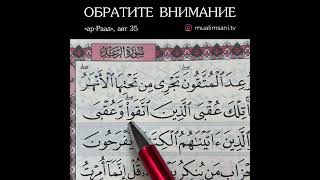 ОБРАТИТЕ ВНИМАНИЕ
«ар-Раад», аят 35
mualimsani.tv
سُورَةُ الرَّعْدِ
وُعِدَ الْمُتَّقُونَ تَجْرِي مِن تَحْتِهَا الْأَنْهَارُ
تِلْكَ عُقْبَى الَّذِينَ اتَّقَوا وَّعُقْبَى
الَّذِينَ ءَاتَيْنَاهُمُ الْكِتَابَ يَفْرَحُونَ
مَن يُنكِرُ بَعْضَهُ قُلْ إِنَّمَا أُمِرْتُ